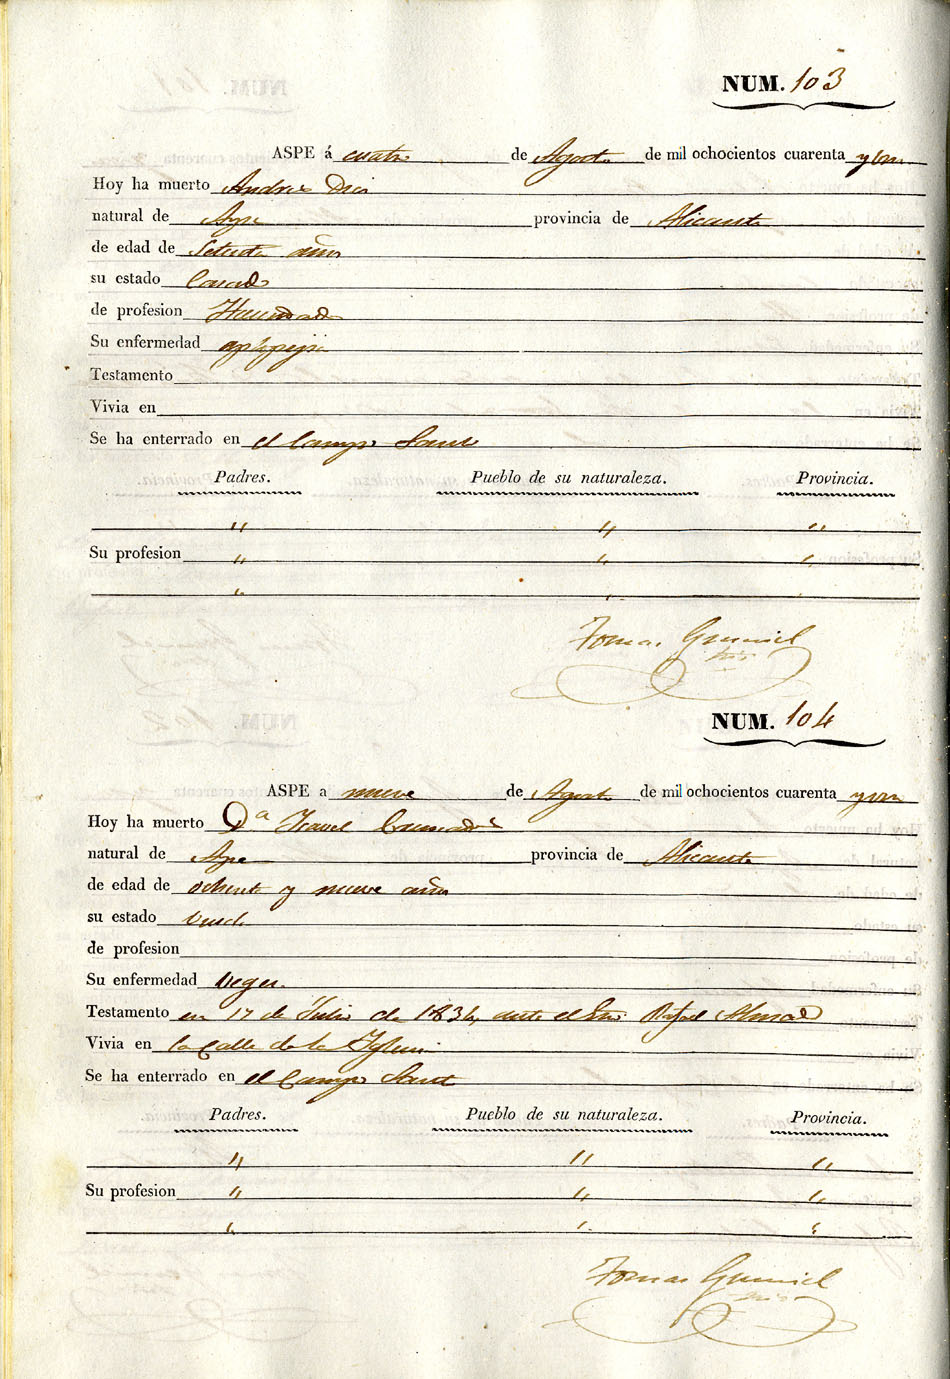 NUM. 103
ASPE á cuatro de Agosto de mil ochocientos cuarenta y un
Hoy ha muerto Andres
natural de Aspe provincia de Alicante
de edad de Setenta años
su estado Casado
de profesion Hacendado
Su enfermedad aplopegia
Testamento
Vivia en
Se ha enterrado en el Campo Santo
Padres. Pueblo de su naturaleza. Provincia.
" " "
Su profesion " " "
"
Tomas
NUM. 104
ASPE a nueve de Agosto de mil ochocientos cuarenta y un
Hoy ha muerto Dª Isavel
natural de Aspe provincia de Alicante
de edad de ochenta y nueve años
su estado Viuda
de profesion
Su enfermedad Vegez
Testamento en 17 de Julio de 1836, ante el Rafael
Vivia en la Calle de la Iglesia
Se ha enterrado en el Campo Santo
Padres. Pueblo de su naturaleza. Provincia.
" " "
Su profesion " " "
" " "
Tomas